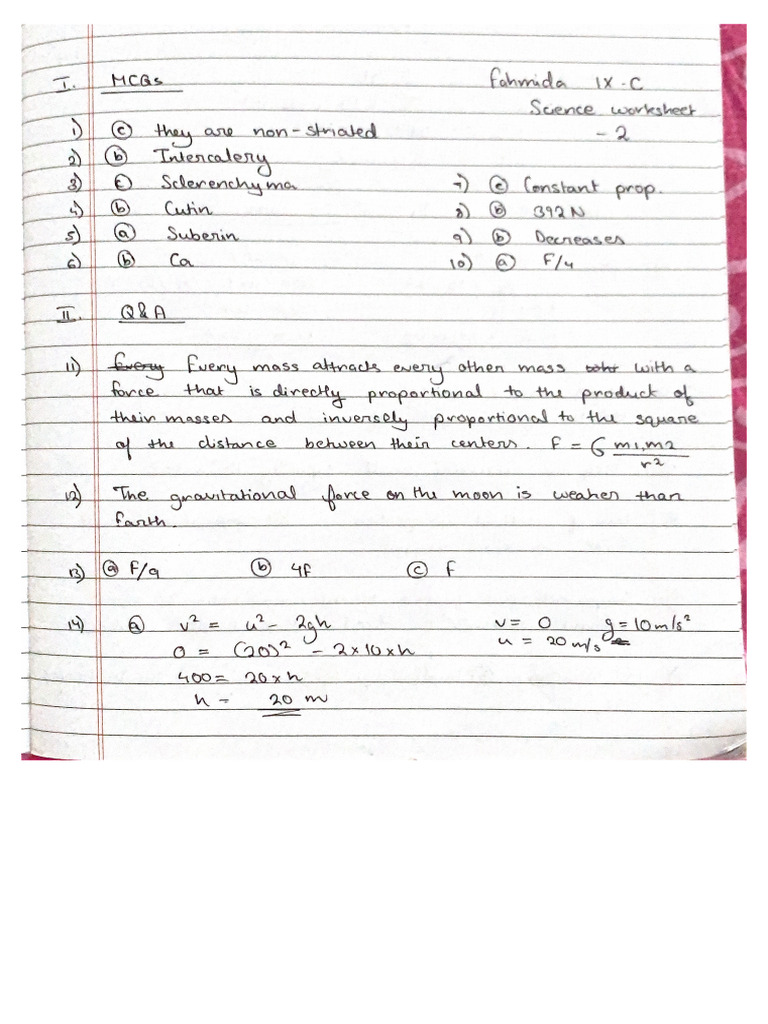 I. MCQs
Fahmida IX-C
Science worksheet
- 2
1) (c) they are non-striated
2) (b) Intercalery
3) (c) Sclerenchyma
4) (b) Cutin
5) (a) Suberin
6) (b) Ca
7) (c) Constant prop.
8) (b) 392 N
9) (b) Decreases
10) (a) F/4
II. Q&A
11) Every Every mass attracts every other mass with a
force that is directly proportional to the product of
their masses and inversely proportional to the square
of the distance between their centers. F = G m1,m2/r2
12) The gravitational force on the moon is weaker than
Earth.
13) (a) F/9 (b) 4F (c) F
14) (a) v² = u² - 2gh v = 0 g = 10 m/s²
0 = (20)² - 2×10×h u = 20 m/s
400 = 20 × h
h = 20 m